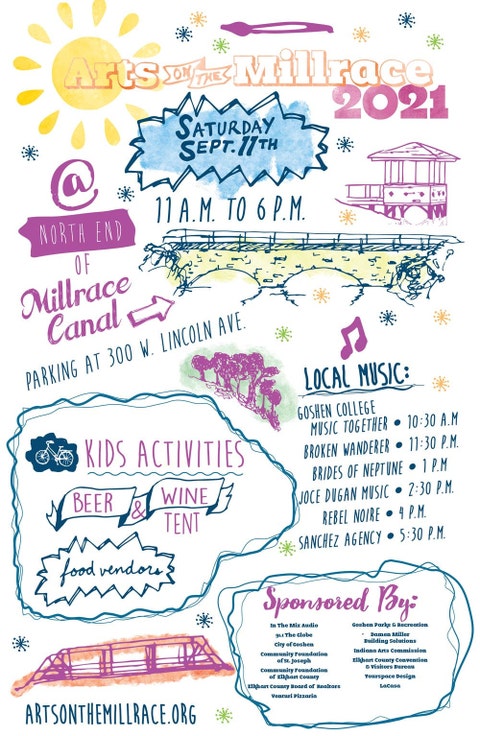 Arts ON THE Millrace
2021
SATURDAY
SEPT. 11TH
11 A.M. TO 6 P.M.
@
NORTH END
OF
Millrace
Canal
PARKING AT 300 W. LINCOLN AVE.
LOCAL MUSIC:
GOSHEN COLLEGE
MUSIC TOGETHER • 10:30 A.M
BROKEN WANDERER • 11:30 P.M.
BRIDES OF NEPTUNE • 1 P.M
JOCE DUGAN MUSIC • 2:30 P.M.
REBEL NOIRE • 4 P.M.
SANCHEZ AGENCY • 5:30 P.M.
KIDS ACTIVITIES
BEER & WINE
TENT
food vendors
Sponsored By:
In The Mix Audio
91.1 The Globe
City of Goshen
Community Foundation
of St. Joseph
Community Foundation
of Elkhart County
Elkhart County Board of Realtors
Venturi Pizzaria
Goshen Parks & Recreation
Damon Miller
Building Solutions
Indiana Arts Commission
Elkhart County Convention
& Visitors Bureau
Yourspace Design
LaCasa
ARTSONTHEMILLRACE.ORG